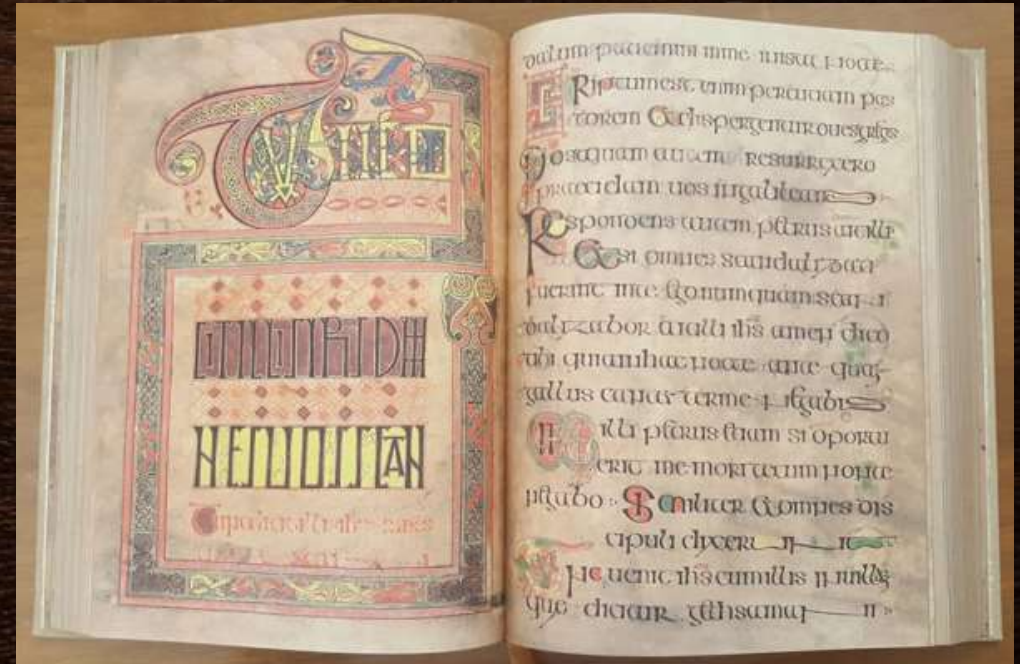 Tunc dicit
illis ihs omnes
uos scan
dalum patiemini in me in ista nocte
Scriptum est enim percutiam pas
torem & dispergentur oues gregis
Postquam autem resurrexero
praecedam uos in galileam
Respondens autem petrus ait illi
& si omnes scandalizati
fuerint in te ego numquam scan
dalizabor ait illi ihs amen dico
tibi quia in hac nocte ante quam
gallus cantat ter me negabis
Ait illi petrus etiam si oportu
erit me mori tecum non te
negabo Similiter & omnes dis
cipuli dixer
uenit ihs cum illis in uillam
que dicitur gethsamani